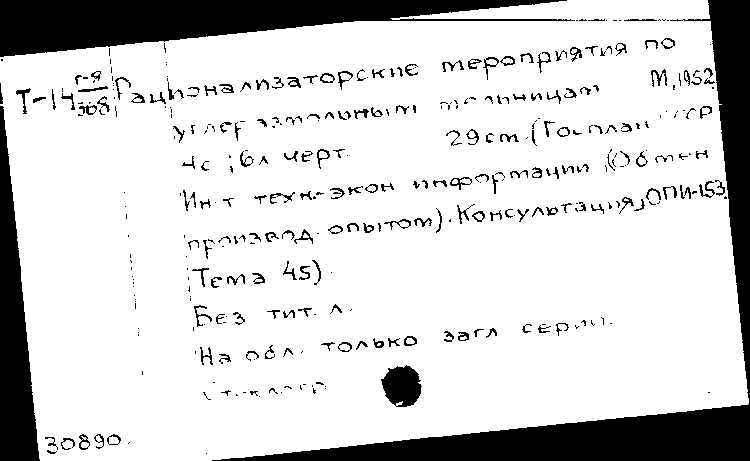 Т-14 г-я/368 Рационализаторские мероприятия по
углеразмольным мельницам М, 1952
4с ; 6л черт. 29 см. (Госплан СССР
Ин-т техн-экон информации (Обмен
производ. опытом). Консультация, ОПИ-153.
Тема 45).
Без тит. л.
На обл. только загл серии.
Стеклогр
30890.